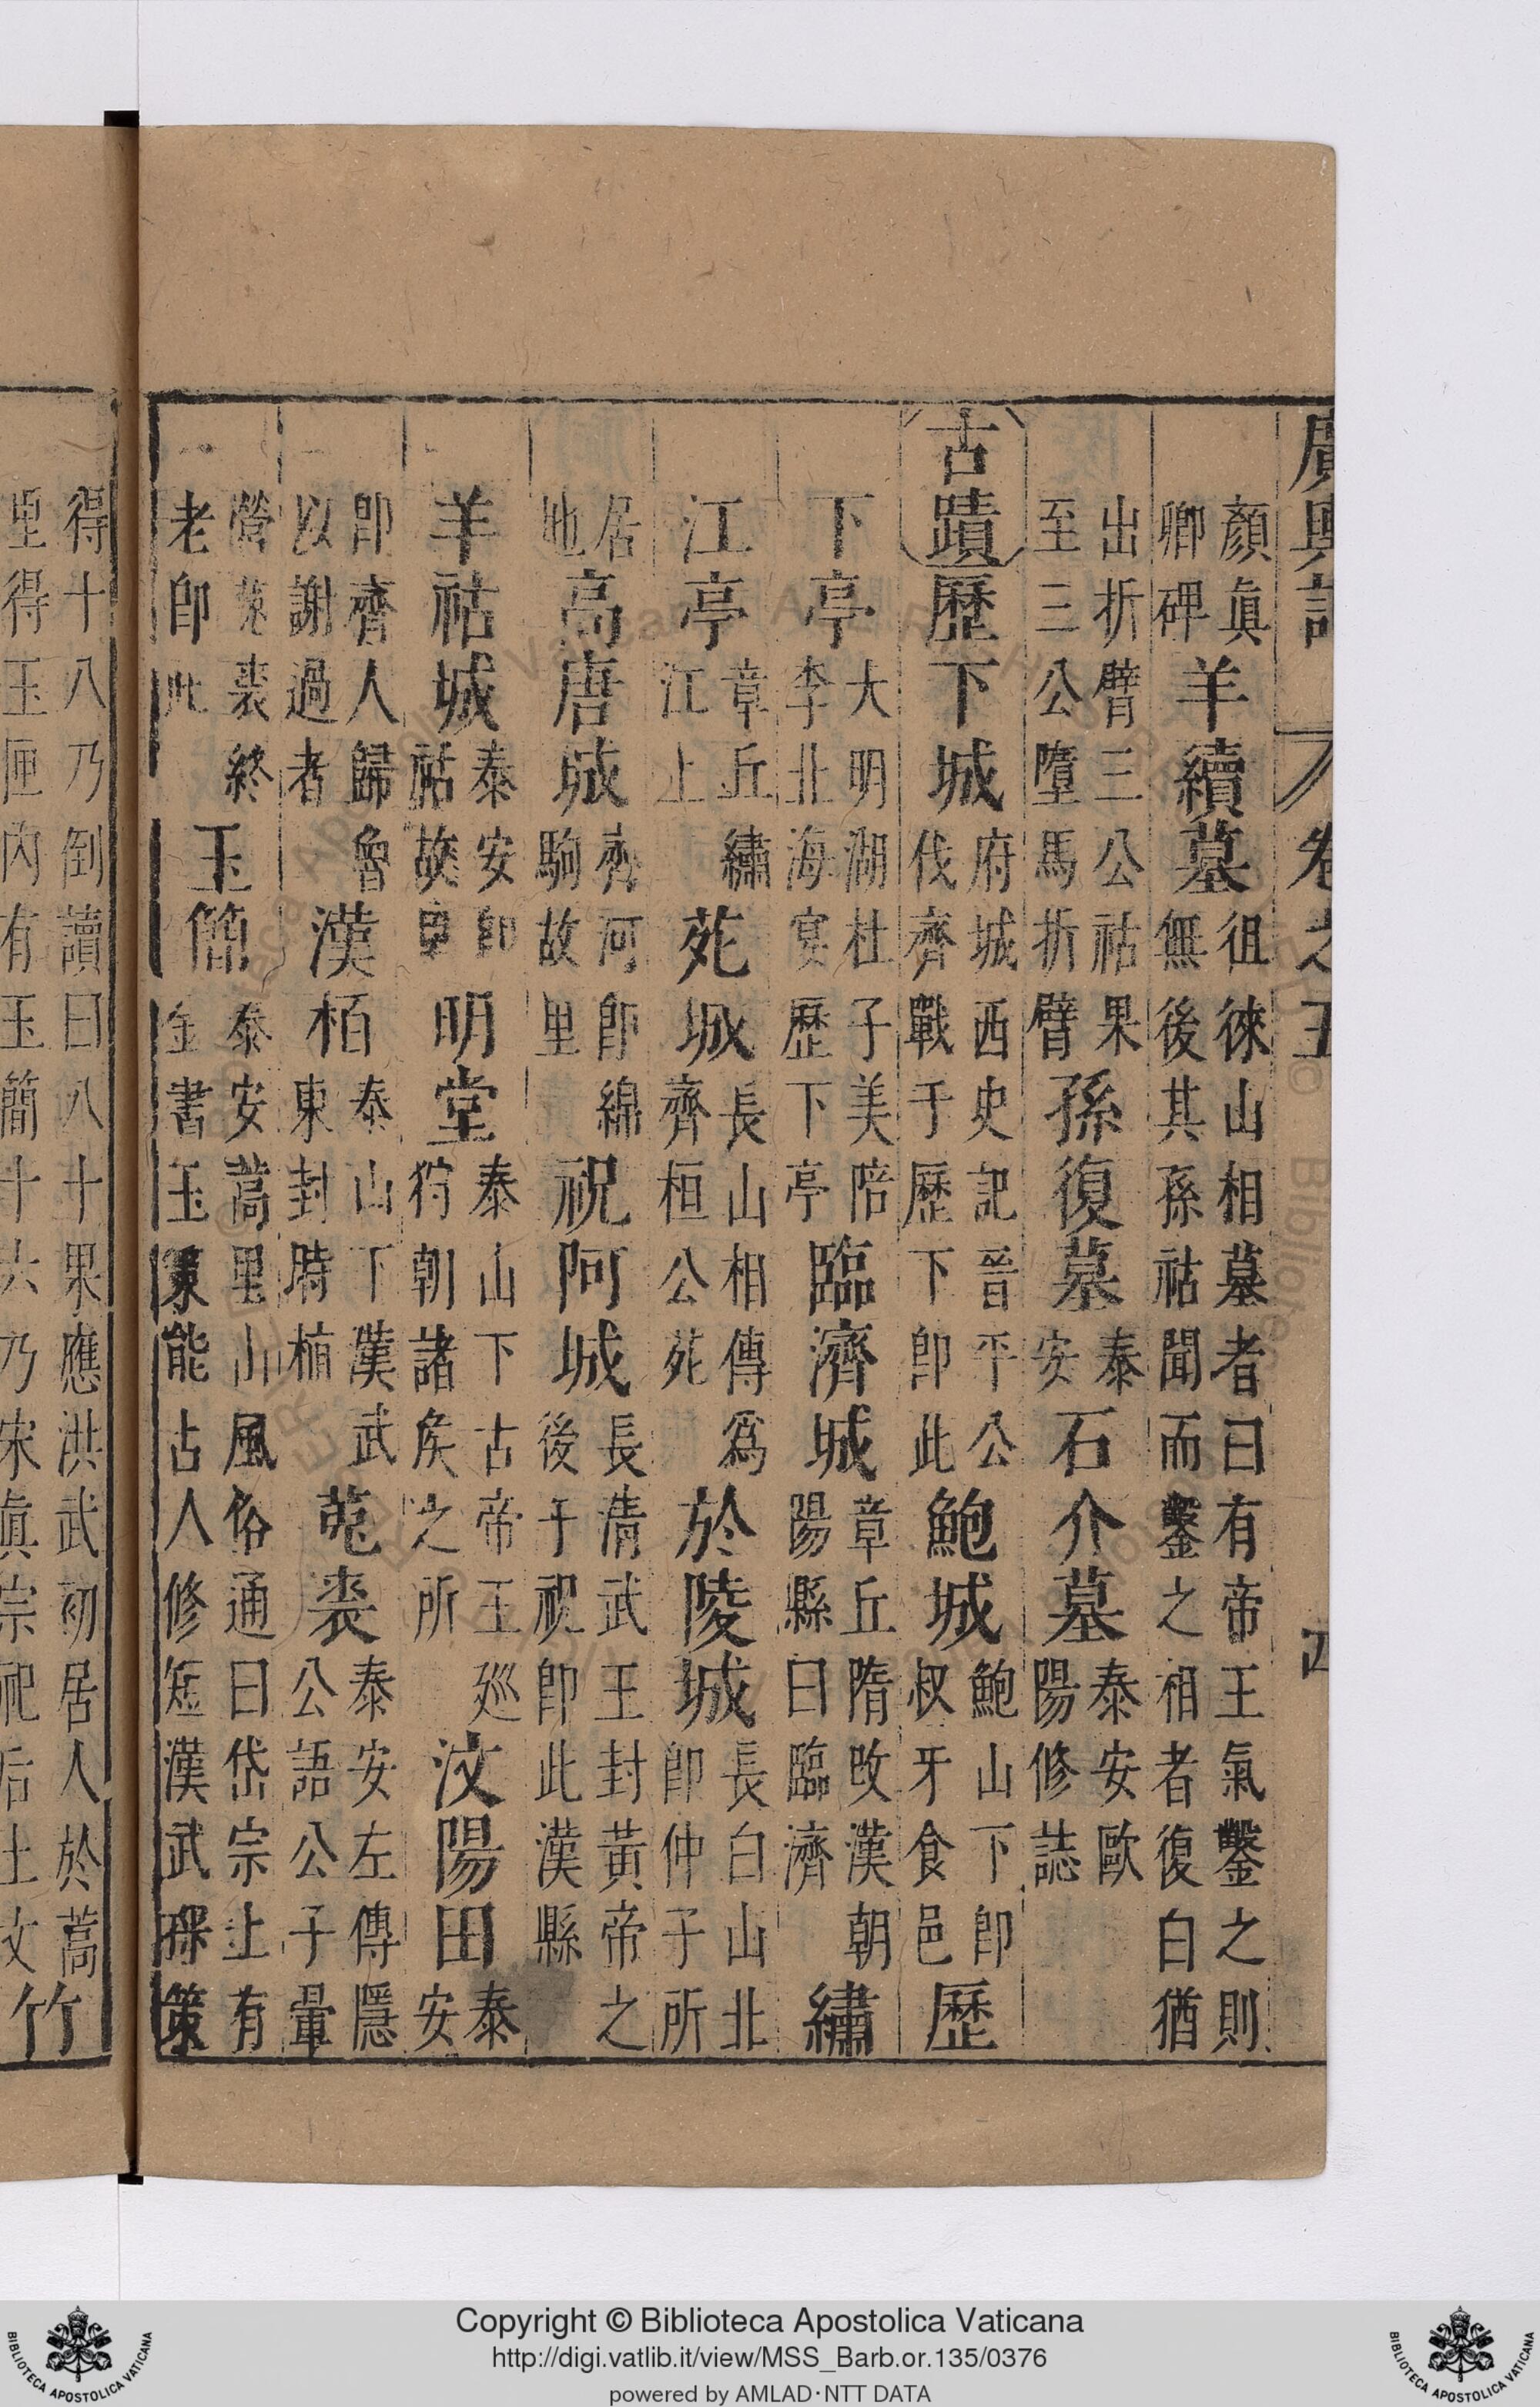 廣輿記 卷之五
顏眞卿碑 羊續墓 徂徠山相墓者曰有帝王氣鑿之則無後其孫祜聞而鑿之相者復白猶
出折臂三公祜果至三公墮馬折臂 孫復墓 泰安 石介墓 泰安歐陽修誌
古蹟 歷下城 府城西史記晉平公伐齊戰于歷下卽此 鮑城 鮑山下卽叔牙食邑 歷
下亭 大明湖杜子美陪李北海宴歷下亭 臨濟城 章丘隋改漢朝陽縣曰臨濟 繡
江亭 章丘繡江上 苑城 長山相傳爲齊桓公苑 於陵城 長白山北卽仲子所
居地 高唐城 齊河卽綿駒故里 祝阿城 長淸武王封黃帝之後于祝卽此漢縣
羊祜城 泰安卽祜故里 明堂 泰山下古帝王廵狩朝諸矦之所 汶陽田 泰安
卽齊人歸魯以謝過者 漢栢 泰山下漢武東封時植 菟裘 泰安左傳隱公語公子翬
營菟裘終老卽此 玉簡 泰安蒿里山風俗通曰岱宗上有金書玉策能古人修短漢武探策
得十八乃倒讀曰八十果應洪武初居人於蒿里得玉匣内有玉簡十六乃宋眞宗祀后土文 竹
Copyright © Biblioteca Apostolica Vaticana
http://digi.vatlib.it/view/MSS_Barb.or.135/0376
powered by AMLAD·NTT DATA
BIBLIOTECA APOSTOLICA VATICANA
BIBLIOTECA APOSTOLICA VATICANA